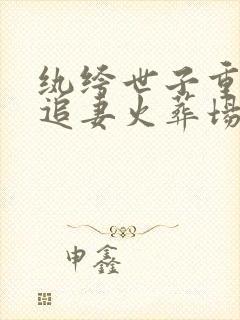 纨绔世子重
追妻火葬场
申鑫